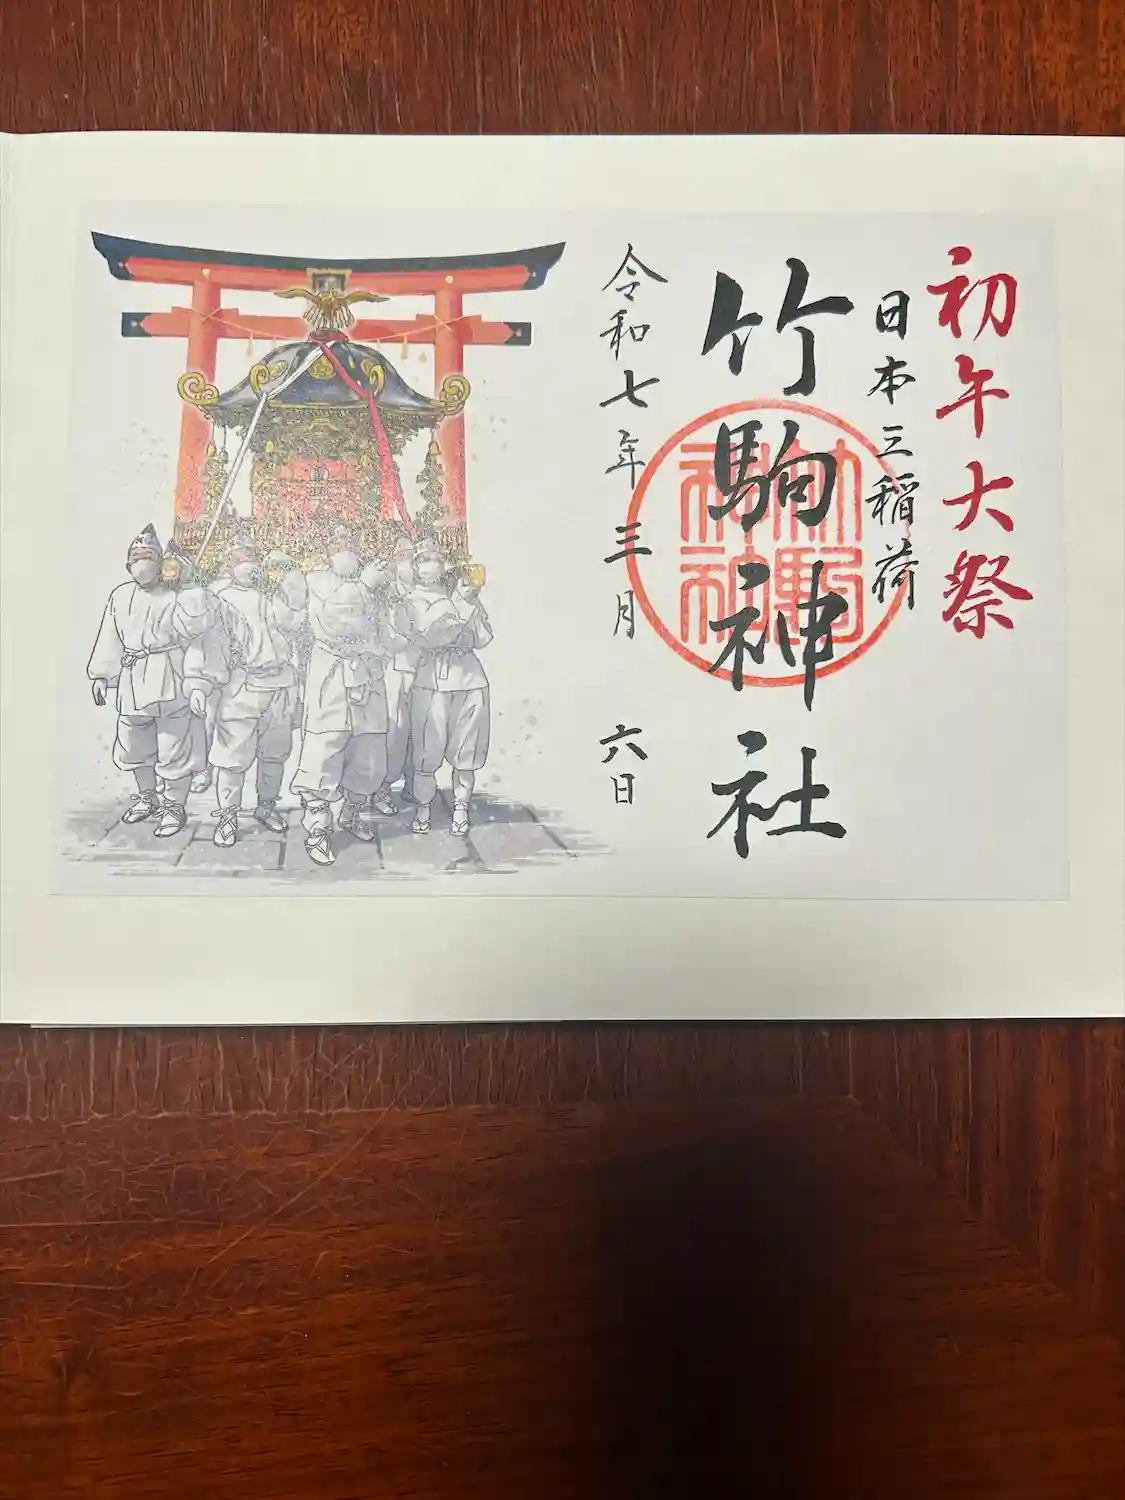 初午大祭
日本三稲荷
竹駒神社
竹駒
神社
令和七年三月六日